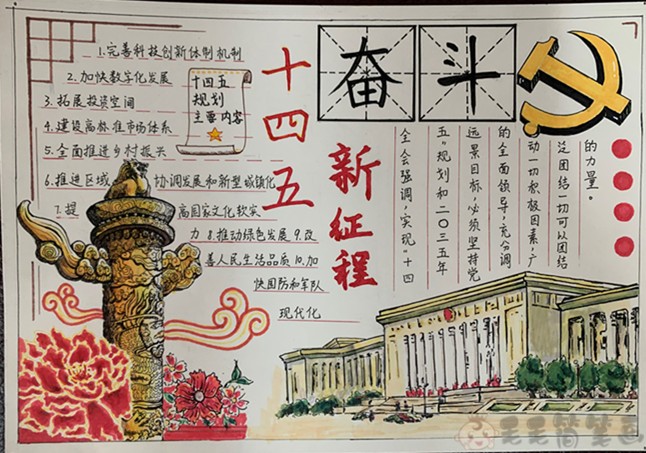 十四五
新征程
奋斗
十四五
规划
主要内容
1.完善科技创新体制机制
2.加快数字化发展
3.拓展投资空间
4.建设高标准市场体系
5.全面推进乡村振兴
6.推进区域 协调发展和新型城镇化
7.提 高国家文化软实
力 8.推动绿色发展 9.改
善人民生活品质 10.加
快国防和军队
现代化
全会强调,实现“十四
五”规划和二〇三五年
远景目标,必须坚持党
的全面领导,充分调
动一切积极因素,广
泛团结一切可以团结
的力量。
毛毛简笔画